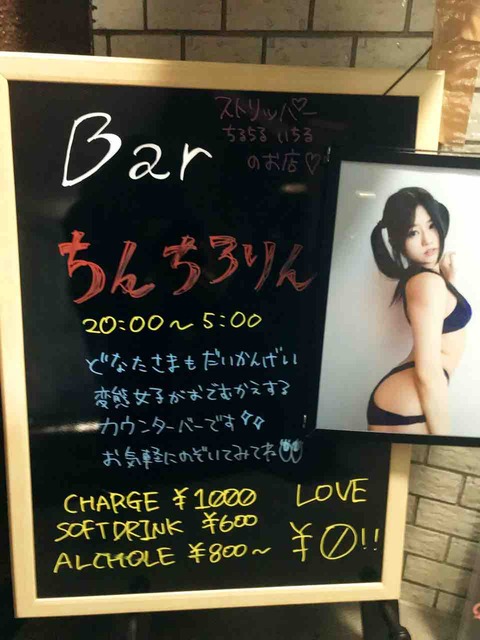 ストリッパー♡
ちるちる いちる
のお店♡
Bar
ちんちろりん
20:00～5:00
どなたさまもだいかんげい
変態女子がおでむかえする
カウンターバーです
お気軽にのぞいてみてね
CHARGE ¥1000
SOFTDRINK ¥600
ALCHOLE ¥800～
LOVE
¥0!!